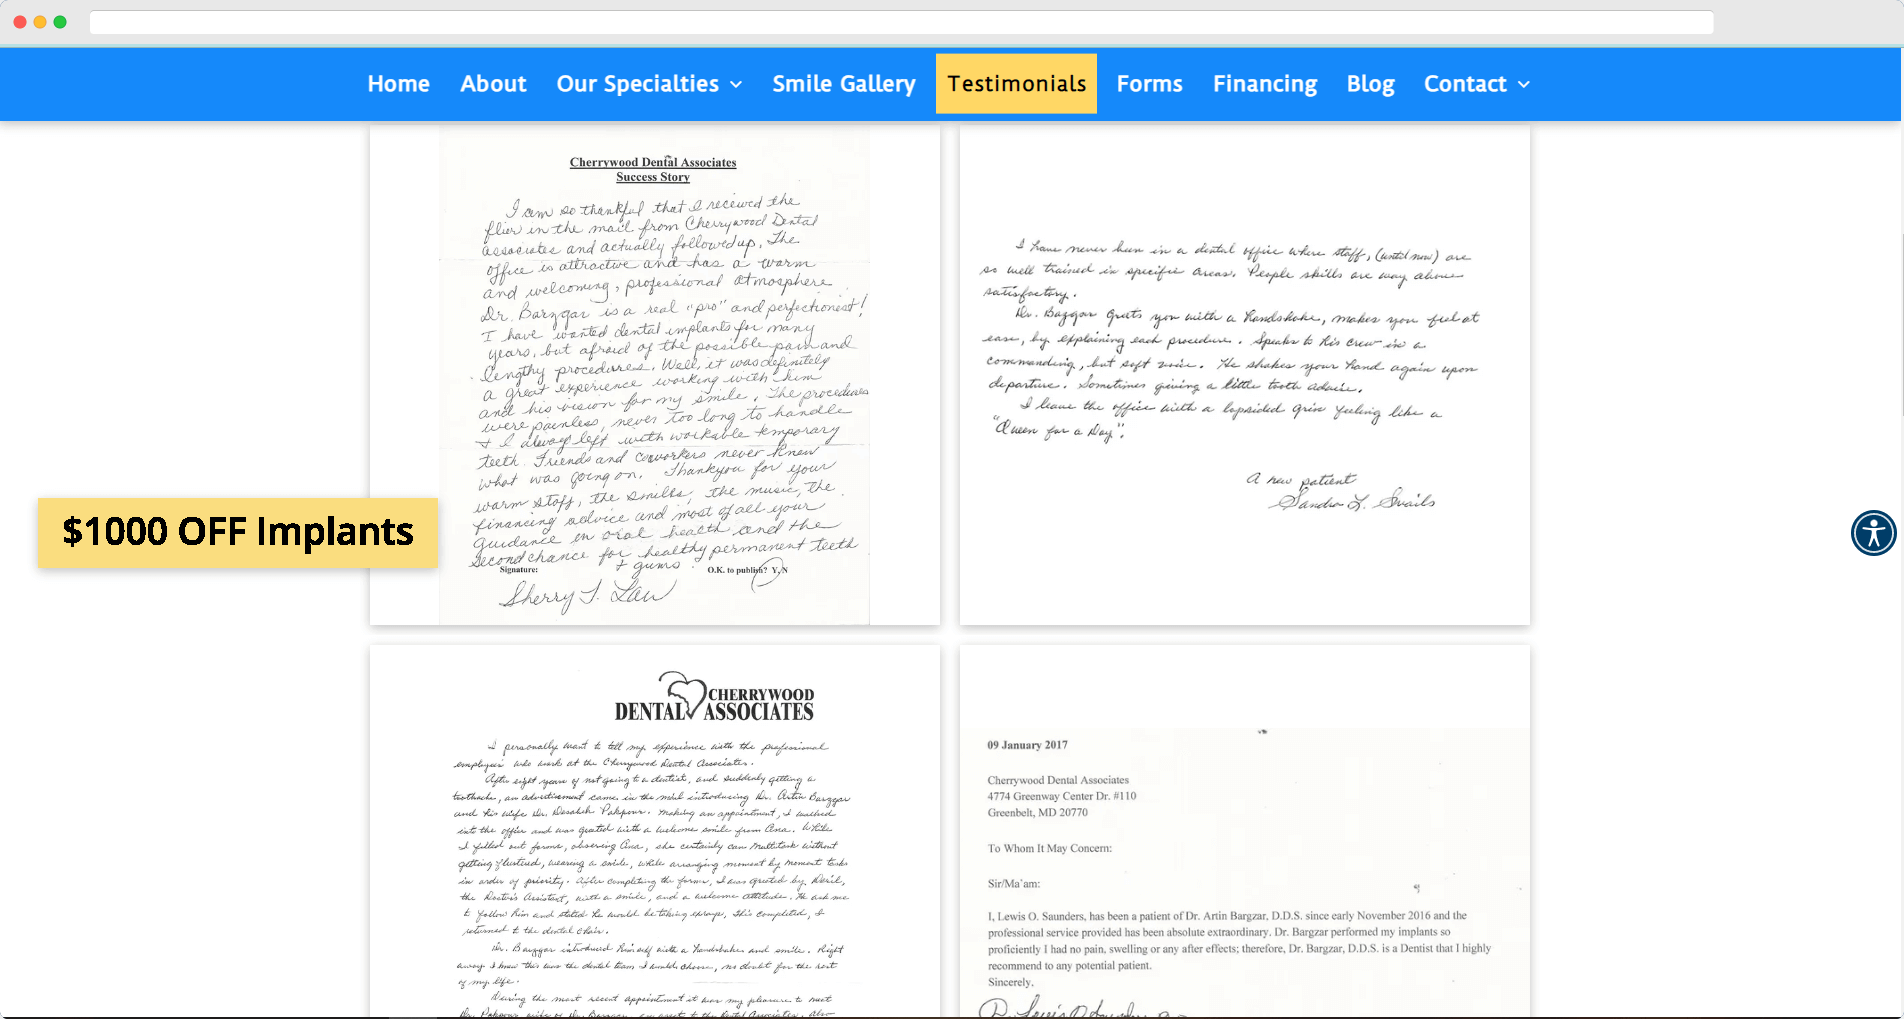 Home About Our Specialties Smile Gallery Testimonials Forms Financing Blog Contact
Cherrywood Dental Associates
Success Story
I am so thankful that I received the
flier in the mail from Cherrywood Dental
Associates and actually followed up. The
office is attractive and has a warm
and welcoming, professional atmosphere.
Dr. Barzgar is a real "pro" and perfectionist!
I have wanted dental implants for many
years, but afraid of the possible pain and
lengthy procedures. Well, it was definitely
a great experience working with him
and his vision for my smile. The procedures
were painless, never too long to handle
+ I always left with workable temporary
teeth. Friends and coworkers never knew
what was going on. Thankyou for your
warm staff, the smiles, the music, the
financing advice and most of all your
guidance in oral health and the
second chance for healthy permanent teeth
+ gums.
Signature: O.K. to publish? Y, N
Sherry J. Law
I have never been in a dental office where staff, (until now) are
so well trained in specific areas. People skills are way above
satisfactory.
Dr. Bazgar greets you with a handshake, makes you feel at
ease, by explaining each procedure. Speaks to his crew in a
commanding, but soft voice. He shakes your hand again upon
departure. Sometimes giving a little tooth advice.
I leave the office with a lopsided grin feeling like a
"Queen for a Day".
A new patient
Sandra L.
$1000 OFF Implants
CHERRYWOOD
DENTAL ASSOCIATES
I personally want to tell my experience with the professional
employees who work at the Cherrywood Dental Associates.
After eight years of not going to a dentist, and suddenly getting a
toothache, an advertisement came in the mail introducing Dr. Artin Barzgar
and his wife Dr. Pakpour. Making an appointment, I walked
into the office and was greeted with a welcome smile from Ana. While
I filled out forms, observing Ana, she certainly can multitask without
getting flustered, wearing a smile, while arranging moment by moment tasks
in order of priority. After completing the forms, I was greeted by
the Doctor's Assistant, with a smile, and a welcome attitude. He ask me
to follow him and stated he would be taking xprays. This completed, I
returned to the dental chair.
Dr. Barzgar introduced himself with a handshake and smile. Right
away I knew this was the dental team I would choose, no doubt for the rest
of my life.
During the most recent appointment it was my pleasure to meet
Dr. Pakpour, wife of Dr. Barzgar, to the Dental Associates. Also
09 January 2017
Cherrywood Dental Associates
4774 Greenway Center Dr. #110
Greenbelt, MD 20770
To Whom It May Concern:
Sir/Ma'am:
I, Lewis O. Saunders, has been a patient of Dr. Artin Bargzar, D.D.S. since early November 2016 and the
professional service provided has been absolute extraordinary. Dr. Bargzar performed my implants so
proficiently I had no pain, swelling or any after effects; therefore, Dr. Bargzar, D.D.S. is a Dentist that I highly
recommend to any potential patient.
Sincerely,